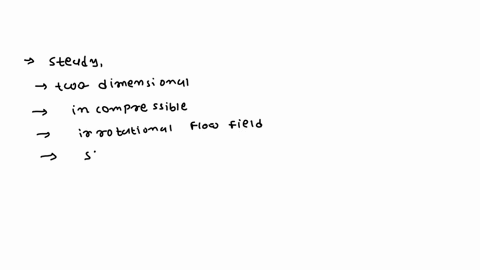 → steady,
→ two dimensional
→ in compressible
→ irrotational flow field
→ s